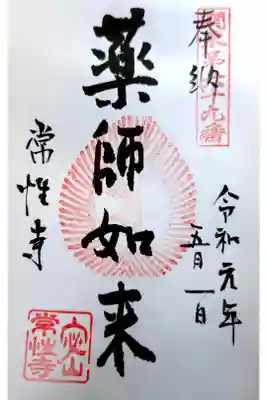 十九番
奉納
令和元年
五月一日
薬師如来
常性寺
山
常性寺